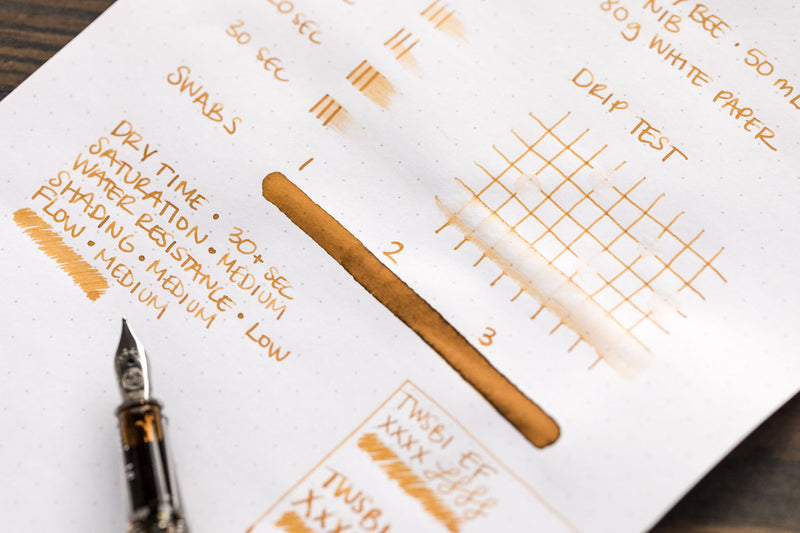 20 SEC
30 SEC
BEE • 50 ML
NIB
80g WHITE PAPER
SWABS
DRIP TEST
DRY TIME • 30+ SEC
SATURATION • MEDIUM
WATER RESISTANCE • LOW
SHADING • MEDIUM
FLOW • MEDIUM
1
2
3
TWSBI EF
XXXX
TWSBI
XXX